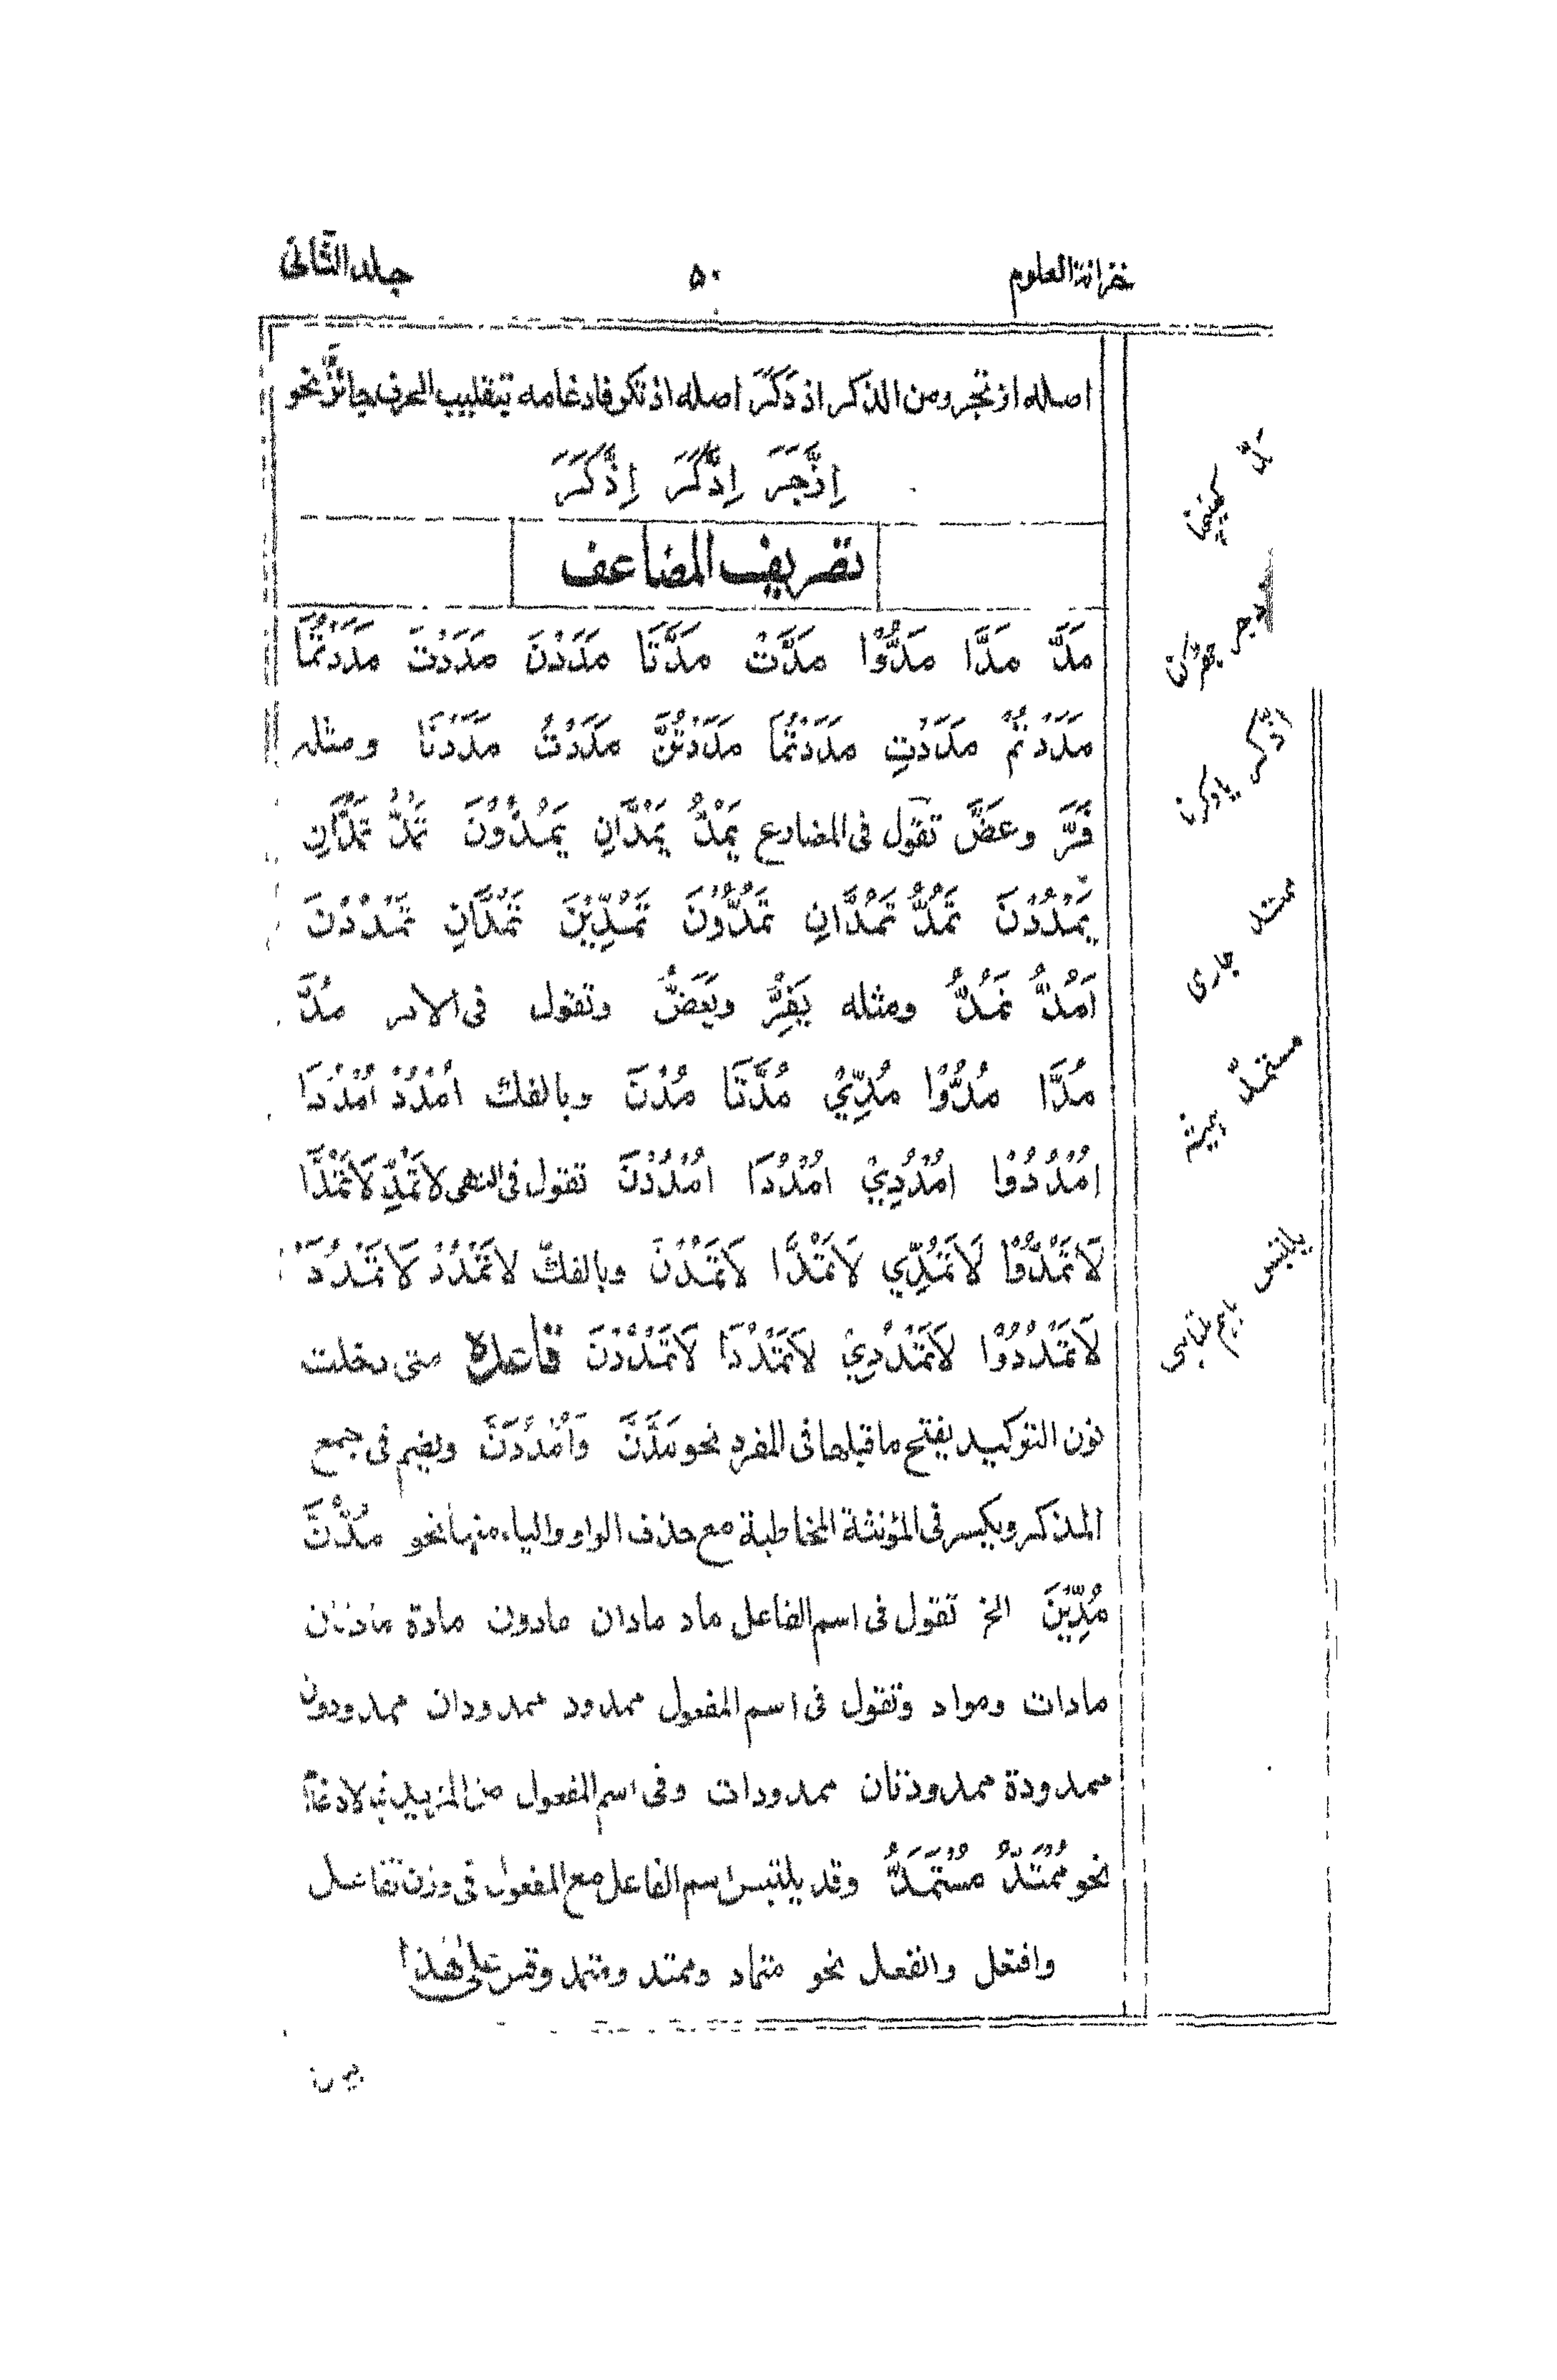 خزانة العلوم ۵۰ جلد الثانی
اصله ازتجر ومن الذكر اذدَكَرَ اصله اذتكر فادغامه بتقليب الحرف جائزٌ نحو
اِذَّجَرَ اِدَّكَرَ اِذَّكَرَ
تصريف المضاعف
مَدَّ مَدَّا مَدُّوْا مَدَّتْ مَدَّتَا مَدَدْنَ مَدَدْتَ مَدَدْتُمَا
مَدَدْتُمْ مَدَدْتِ مَدَدْتُمَا مَدَدْتُنَّ مَدَدْتُ مَدَدْنَا ومثله
فَرَّ وعَضَّ تقول فى المضارع يَمُدُّ يَمُدَّانِ يَمُدُّوْنَ تَمُدُّ تَمُدَّانِ
يَمْدُدْنَ تَمُدُّ تَمُدَّانِ تَمُدُّوْنَ تَمُدِّيْنَ تَمُدَّانِ تَمْدُدْنَ
اَمُدُّ نَمُدُّ ومثله يَفِرُّ ويَعَضُّ وتقول فى الامر مُدَّ
مُدَّا مُدُّوْا مُدِّيْ مُدَّتَا مُدْنَ وبالفك اُمْدُدْ اُمْدُدَا
اُمْدُدُوْا اُمْدُدِيْ اُمْدُدَا اُمْدُدْنَ تقول فى النهى لاَتَمُدِّ لَاتَمُدَّا
لَاتَمُدُّوْا لَاتَمُدِّي لَاتَمُدَّا لَاتَمُدْنَ وبالفكّ لاتَمْدُدْ لَاتَمْدُدَا
لَاتَمْدُدُوْا لَاتَمْدُدِيْ لَاتَمْدُدَا لَاتَمْدُدْنَ قاعدة متى دخلت
نون التوكيد يفتح ما قبلها فى المفرد نحو مُدَّنَّ وَاُمْدُدَنَّ ويضم فى جمع
المذكر ويكسر فى المؤنثة المخاطبة مع حذف الواو والياء منهما نحو مُدُّنَّ
مُدِّيْنَ الخ تقول فى اسم الفاعل ماد مادان مادون مادة مادتان
مادات ومواد وتقول فى اسم المفعول ممدود ممدودان ممدودون
ممدودة ممدودتان ممدودات وفى اسم المفعول من المزيد فيه لادغامًا
نحو مُمْتَدٌّ مُسْتَمَدٌّ وقد يلتبس اسم الفاعل مع المفعول فى وزن تفاعل
وافتعل وانفعل نحو متماد وممتد ومنمد وقس على هذا
مدّ كھینچنا
اذّكر یاد کرنا
ممتد جاری
مستمدّ
يلتبس